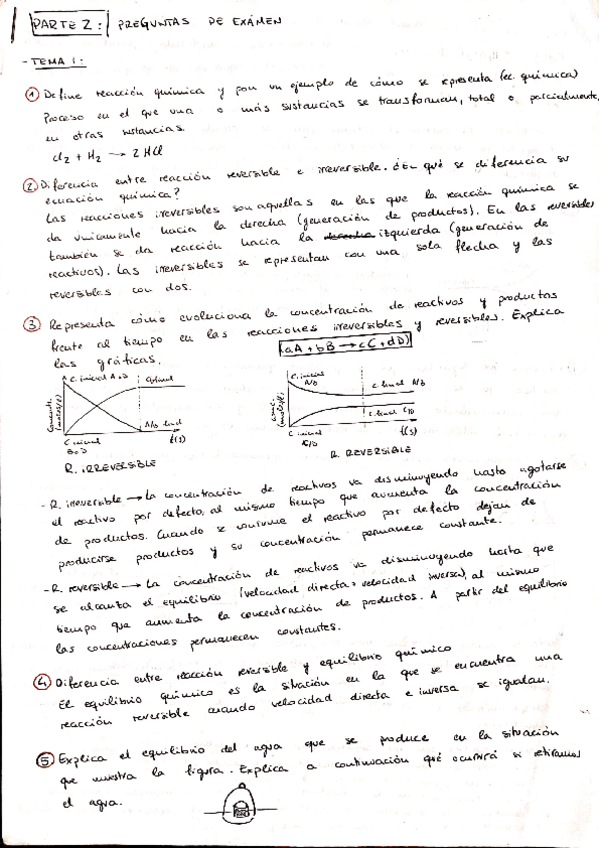 PARTE 2: PREGUNTAS DE EXÁMEN
- TEMA 1:
① Define reacción química y pon un ejemplo de cómo se representa (ec. química)
Proceso en el que una o más sustancias se transforman, total o parcialmente,
en otras sustancias.
Cl2 + H2 → 2 HCl
② Diferencia entre reacción reversible e irreversible. ¿En qué se diferencia su
ecuación química?
Las reacciones irreversibles son aquellas en las que la reacción química se
da únicamente hacia la derecha (generación de productos). En las reversibles
también se da reacción hacia la derecha izquierda (generación de
reactivos). Las irreversibles se representan con una sola flecha y las
reversibles con dos.
③ Representa cómo evoluciona la concentración de reactivos y productos
frente al tiempo en las reacciones irreversibles y reversibles. Explica
las gráficas. (aA + bB → cC + dD)
C. inicial
A/B
C. final A/B
C. final C/D
C. inicial
t(s)
t(s)
R. IRREVERSIBLE
R. REVERSIBLE
- R. irreversible → La concentración de reactivos va disminuyendo hasta agotarse
el reactivo por defecto, al mismo tiempo que aumenta la concentración
de productos. Cuando se consume el reactivo por defecto dejan de
producirse productos y su concentración permanece constante.
- R. reversible → La concentración de reactivos va disminuyendo hasta que
se alcanza el equilibrio (velocidad directa = velocidad inversa), al mismo
tiempo que aumenta la concentración de productos. A partir del equilibrio
las concentraciones permanecen constantes.
④ Diferencia entre reacción reversible y equilibrio químico
El equilibrio químico es la situación en la que se encuentra una
reacción reversible cuando velocidad directa e inversa se igualan.
⑤ Explica el equilibrio del agua que se produce en la situación
que muestra la figura. Explica a continuación qué ocurrirá si retiramos
el agua.